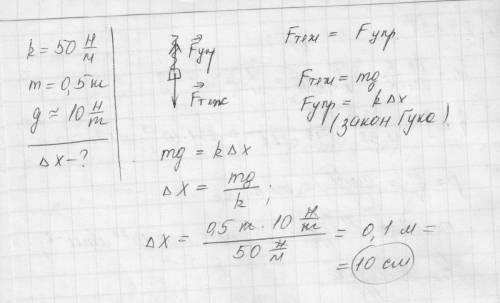 k = 50 Н/м
m = 0,5 кг
g ≈ 10 Н/кг
Δx - ?
F упр
F тяж
F тяж = F упр.
F тяж = mg
F упр = kΔx
(закон Гука).
mg = kΔx
Δx = mg/k ;
Δx = 0,5 кг · 10 Н/кг / 50 Н/м = 0,1 м =
= 10 см